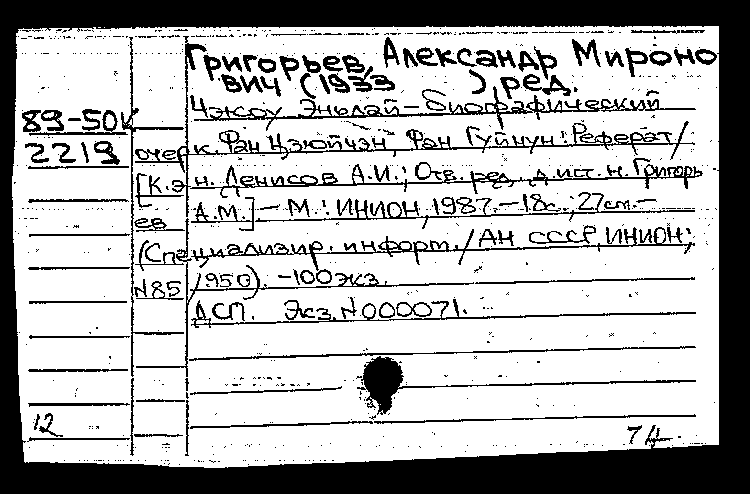 Григорьев, Александр Мироно
вич (1933 ), ред.
Чжоу Эньлай – биографический
89-50К
2219 очерк. Фан Цзюйчэн, Фан Гуйнун: Реферат/
[К.э.н. Денисов А.И.; Отв. ред. д.ист.н. Григорь
ев А.М.] – М.: ИНИОН, 1987. – 18с.; 27см. –
(Специализир. информ./АН СССР, ИНИОН;
N85/950). – 100экз.
ДСП. Экз. N000071.
12 74.